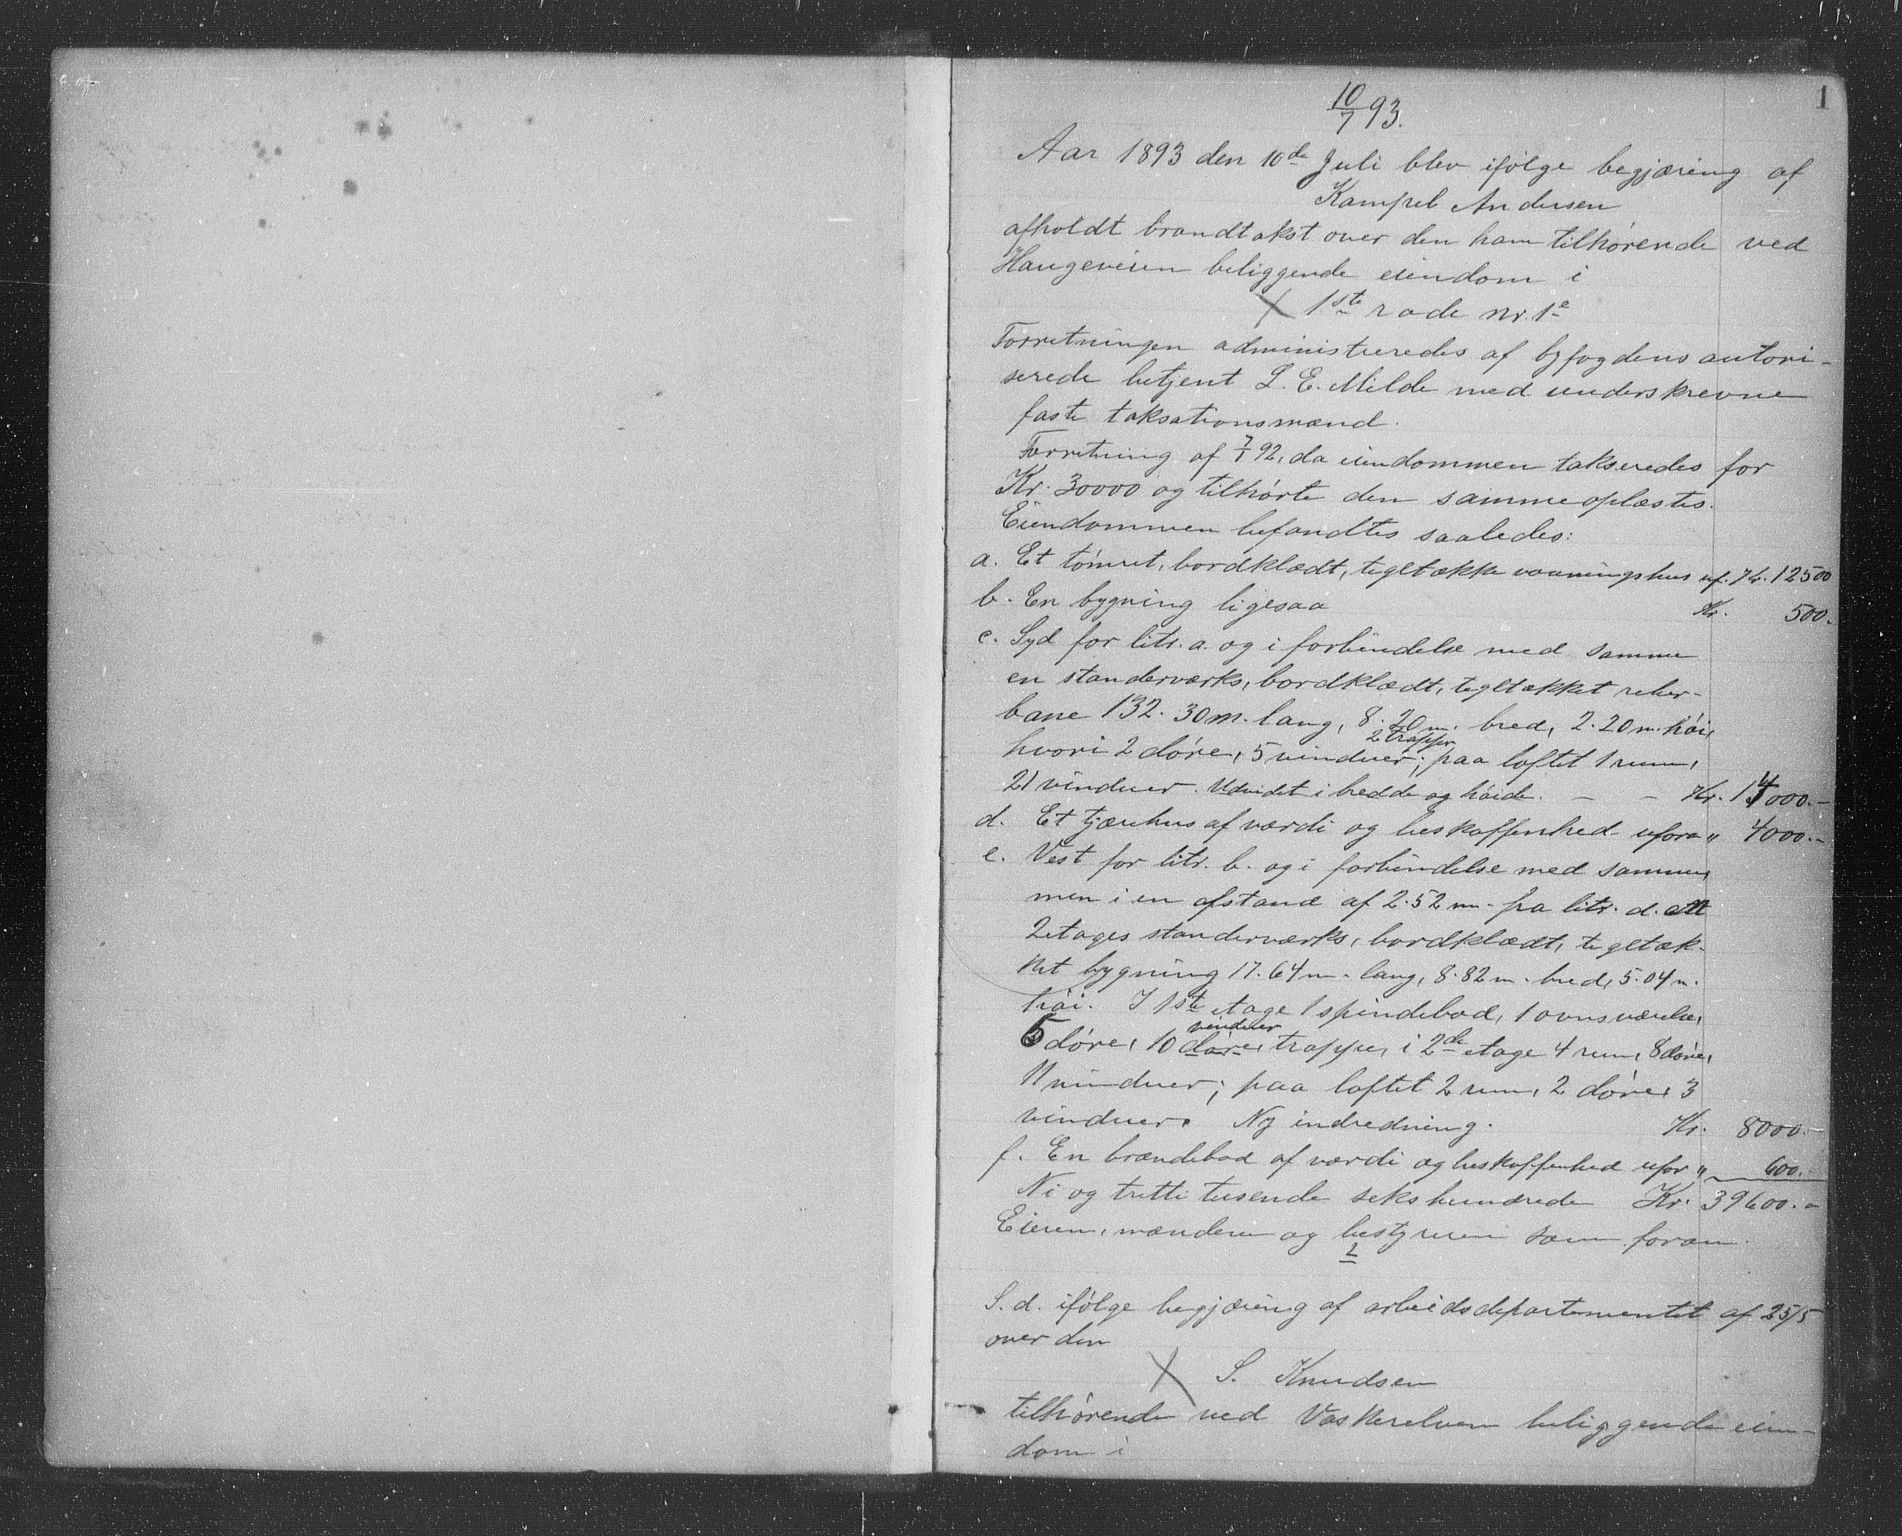 1
10/7 93.
Aar 1893 den 10de Juli blev ifølge begjæring af
Andersen
afholdt brandtakst over den ham tilhørende ved
Haugeveien beliggende eiendom i
X 1ste rode nr. 1e
Forretningen administreredes af byfogdens autori-
serede betjent L. E. Milde med underskrevne
faste taksationsmænd.
Forretning af 7/1 92, da eiendommen takseredes for
Kr. 30000 og tilhørte den samme oplæstes.
Eiendommen befandtes saaledes:
a. Et tømret, bordklædt, tegltække vaaningshus uf. Kr. 12500
b. En bygning ligesaa Kr. 500.
c. Syd for litr. a. og i forbindelse med samme
en standerværks, bordklædt, tegltækket reber-
bane 132.30 m. lang, 8.20 m. bred, 2.20 m. høi,
hvori 2 døre, 5 vinduer, 2 trapper; paa loftet 1 rum,
21 vinduer. Udvidet i bredde og høide. - - Kr. 14000.-
d. Et tjærehus af værdi og beskaffenhed ufora. " 4000.-
e. Vest for litr. b. og i forbindelse med samme,
men i en afstand af 2.52 m. fra litr. d. ett
2 etages standerværks, bordklædt, tegltæk-
ket bygning 17.64 m. lang, 8.82 m. bred, 5.04 m.
høi. I 1ste etage 1 spindebod, 1 ovnsværelse,
5 døre, 10 døre vinduer, trappe, i 2de etage 4 rum, 8 døre,
11 vinduer; paa loftet 2 rum, 2 døre, 3
vinduer. Ny indredning. Kr. 8000.-
f. En brændebod af værdi og beskaffenhed ufor " 600.-
Ni og tretti tusende seks hundrede Kr. 39600.-
Eieren, mændene og bestyreren som foran.
2
S. d. ifølge begjæring af arbeidsdepartementet af 25/5
over den
X S. Knudsen
tilhørende ved Vaskerelven beliggende eien-
dom i